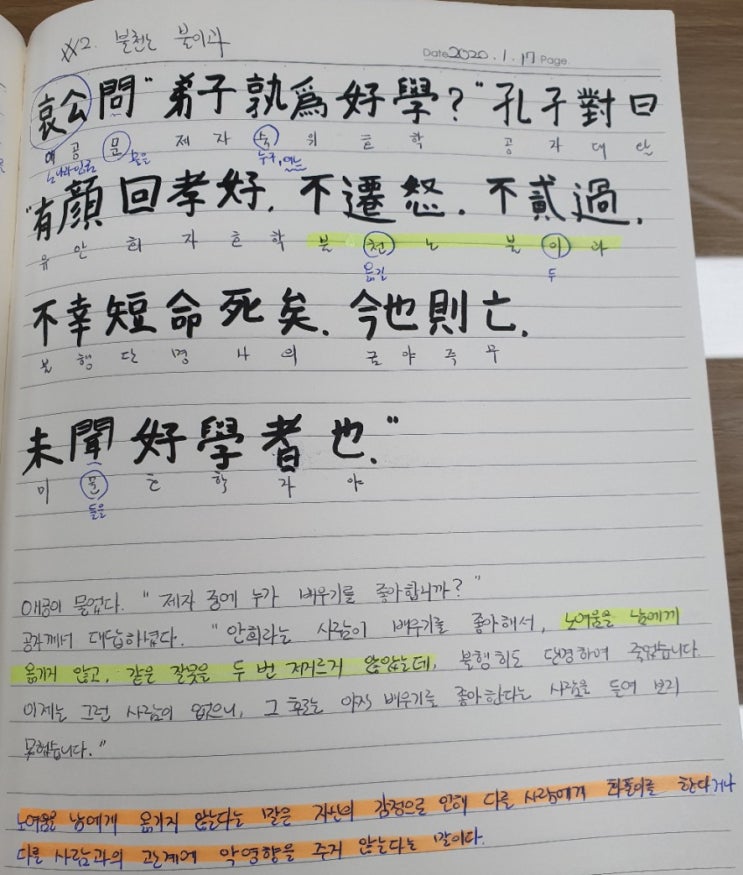 XX2. 불천노 불이과
Date 2020. 1. 17 Page.
哀公問“弟子孰爲好學?” 孔子對曰
애 공 문 제 자 숙 위 호 학 공 자 대 왈
노나라 임금 물을 누구, 어느
“有顔回孝好. 不遷怒. 不貳過.
유 안 회 자 호 학 불 천 노 불 이 과
옮길 두
不幸短命死矣. 今也則亡.
불 행 단 명 사 의 금 야 즉 무
未聞好學者也.”
미 문 호 학 자 야
들을
애공이 물었다. “제자 중에 누가 배우기를 좋아합니까?”
공자께서 대답하셨다. “안회라는 사람이 배우기를 좋아해서, 노여움을 남에게
옮기지 않고, 같은 잘못을 두 번 저지르지 않았는데, 불행히도 단명하여 죽었습니다.
이제는 그런 사람이 없으니, 그 후로는 아직 배우기를 좋아한다는 사람을 들어 보지
못했습니다.”
노여움을 남에게 옮기지 않는다는 말은 자신의 감정으로 인해 다른 사람에게 화풀이를 한다거나
다른 사람과의 관계에 악영향을 주지 않는다는 말이다.